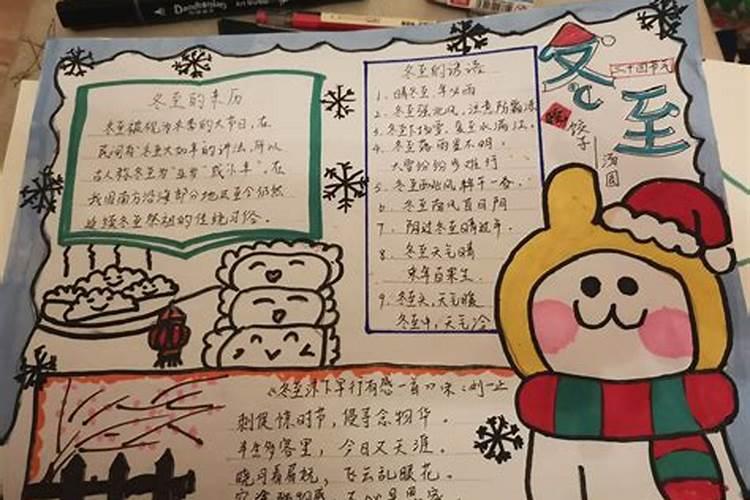 冬至的来历
冬至被视为冬季的大节日,在
民间有"冬至大如年"的讲法,所以
古人称冬至为"亚岁"或"小年"。在
我国南方沿海部分地区至今仍然
延续冬至祭祖的传统习俗。
冬至的谚语
1、晴冬至,年必雨
2、冬至强北风,注意防霜冻
3、冬至下场雪,夏至水满江。
4、冬至落雨星不明,
大雪纷纷步难行
5、冬至西北风,来年干一春。
6、冬至南风百日阴
7、阴过冬至晴过年。
8、冬至天气晴
来年百果生
9、冬至头,天气暖
冬至中,天气冷
冬至
二十四节气
吃
饺子
汤圆
《冬至洋下早行有感一首》
宋:刘
刺促惊时节,侵寻念物华。
半生多客里,今日又天涯。
晓月看屋梳,飞云乱眼花。